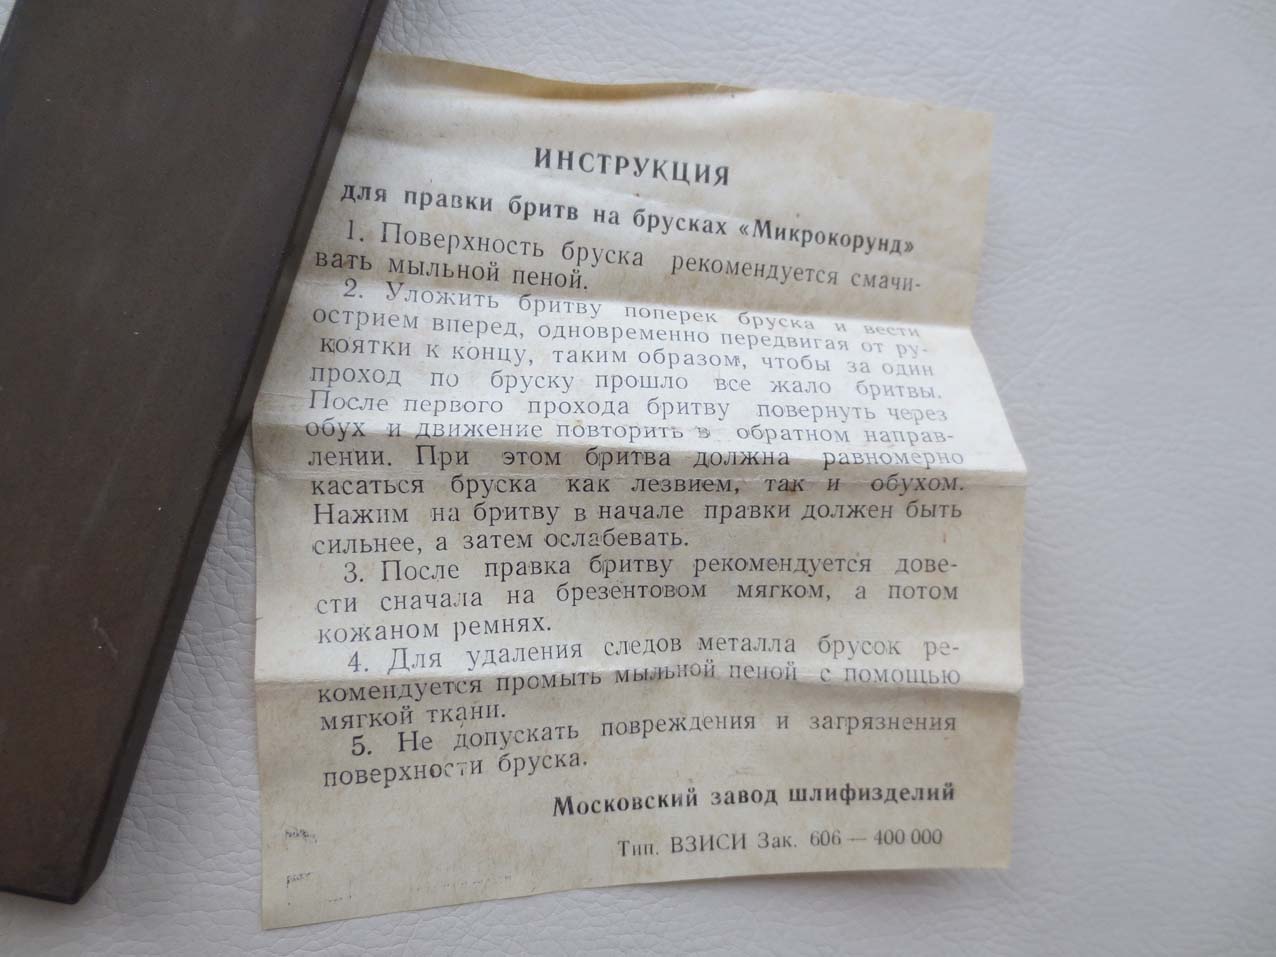 ИНСТРУКЦИЯ
для правки бритв на брусках «Микрокорунд»
1. Поверхность бруска рекомендуется смачи-
вать мыльной пеной.
2. Уложить бритву поперек бруска и вести
острием вперед, одновременно передвигая от ру-
коятки к концу, таким образом, чтобы за один
проход по бруску прошло все жало бритвы.
После первого прохода бритву повернуть через
обух и движение повторить в обратном направ-
лении. При этом бритва должна равномерно
касаться бруска как лезвием, так и обухом.
Нажим на бритву в начале правки должен быть
сильнее, а затем ослабевать.
3. После правка бритву рекомендуется дове-
сти сначала на брезентовом мягком, а потом
кожаном ремнях.
4. Для удаления следов металла брусок ре-
комендуется промыть мыльной пеной с помощью
мягкой ткани.
5. Не допускать повреждения и загрязнения
поверхности бруска.
Московский завод шлифизделий
Тип. ВЗИСИ Зак. 606 — 400 000